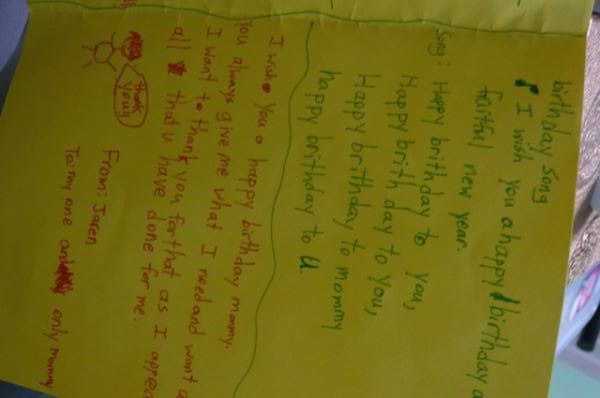 birthday song
I wish you a happy birthday a
fruitful new year.
Song: Happy brithday to you,
Happy brith day to you,
Happy brithday to mommy
happy brithday to u.
I wish you a happy birthday mommy.
you always give me what I need and want
I want to thank you for that as I apprec
all that u have done for me.
thank
you!!
From: Jaren
To: my one and only mommy